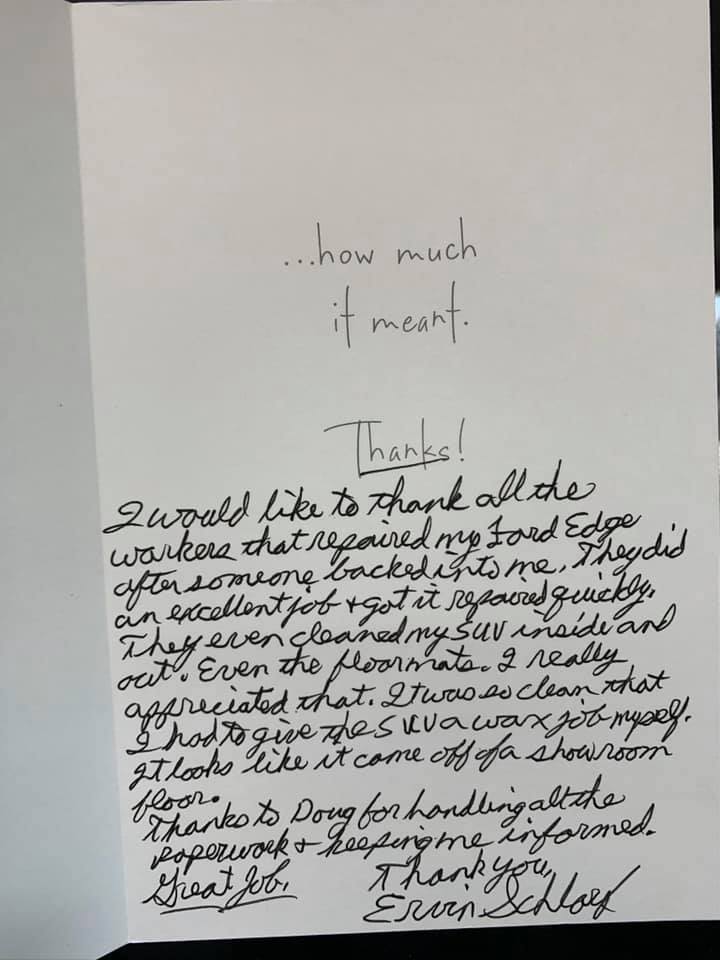 ...how much
it meant.
Thanks!
I would like to thank all the
workers that repaired my Ford Edge
after someone backed into me. They did
an excellent job + got it repaired quickly.
They even cleaned my SUV inside and
out. Even the floormats. I really
appreciated that. It was so clean that
I had to give the SUV a wax job myself.
It looks like it came off of a showroom
floor.
Thanks to Doug for handling all the
paperwork + keeping me informed.
Great Job.
Thank you,
Ervin